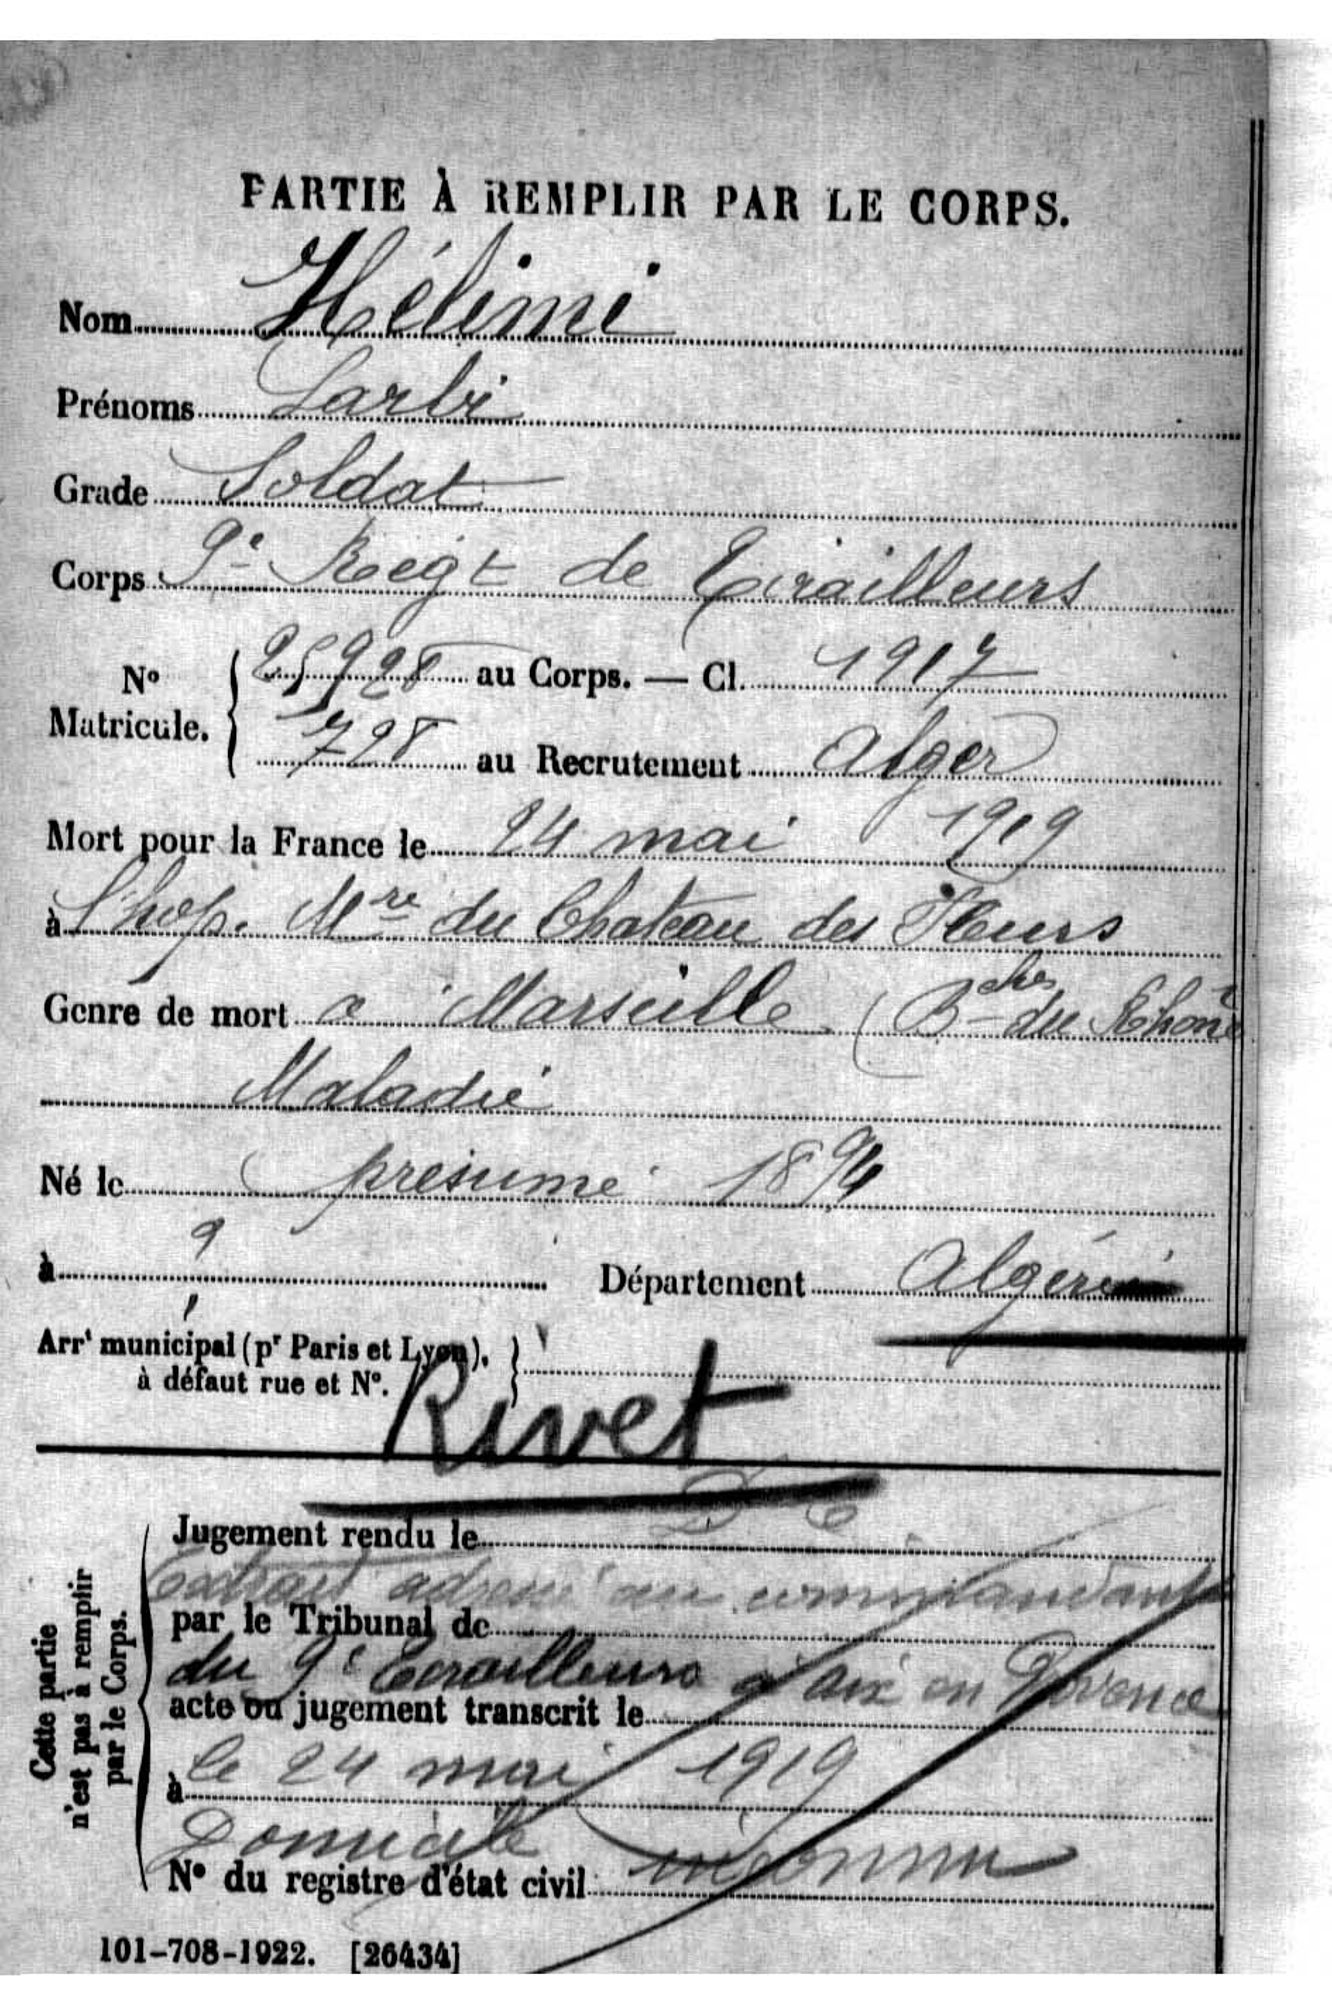 PARTIE À REMPLIR PAR LE CORPS.
Nom Hélimi
Prénoms Larbi
Grade Soldat
Corps 9e Regt de Tirailleurs
No Matricule. { 25928 au Corps. — Cl. 1917
728 au Recrutement Alger
Mort pour la France le 24 mai 1919
à l'hop. Mre du Chateau des Fleurs
Genre de mort a Marseille (Bches du Rhône
Maladie
Né le présumé 1894
à ? Département Algérie
Arrt municipal (pr Paris et Lyon), }
à défaut rue et No.
Rivet
Cette partie n'est pas à remplir par le Corps.
Jugement rendu le
Extrait adressé au commandant
par le Tribunal de
du 9e Tirailleurs à Aix en Provence
acte ou jugement transcrit le
le 24 mai 1919
à
Domicile inconnu
No du registre d'état civil
101-708-1922. [26434]